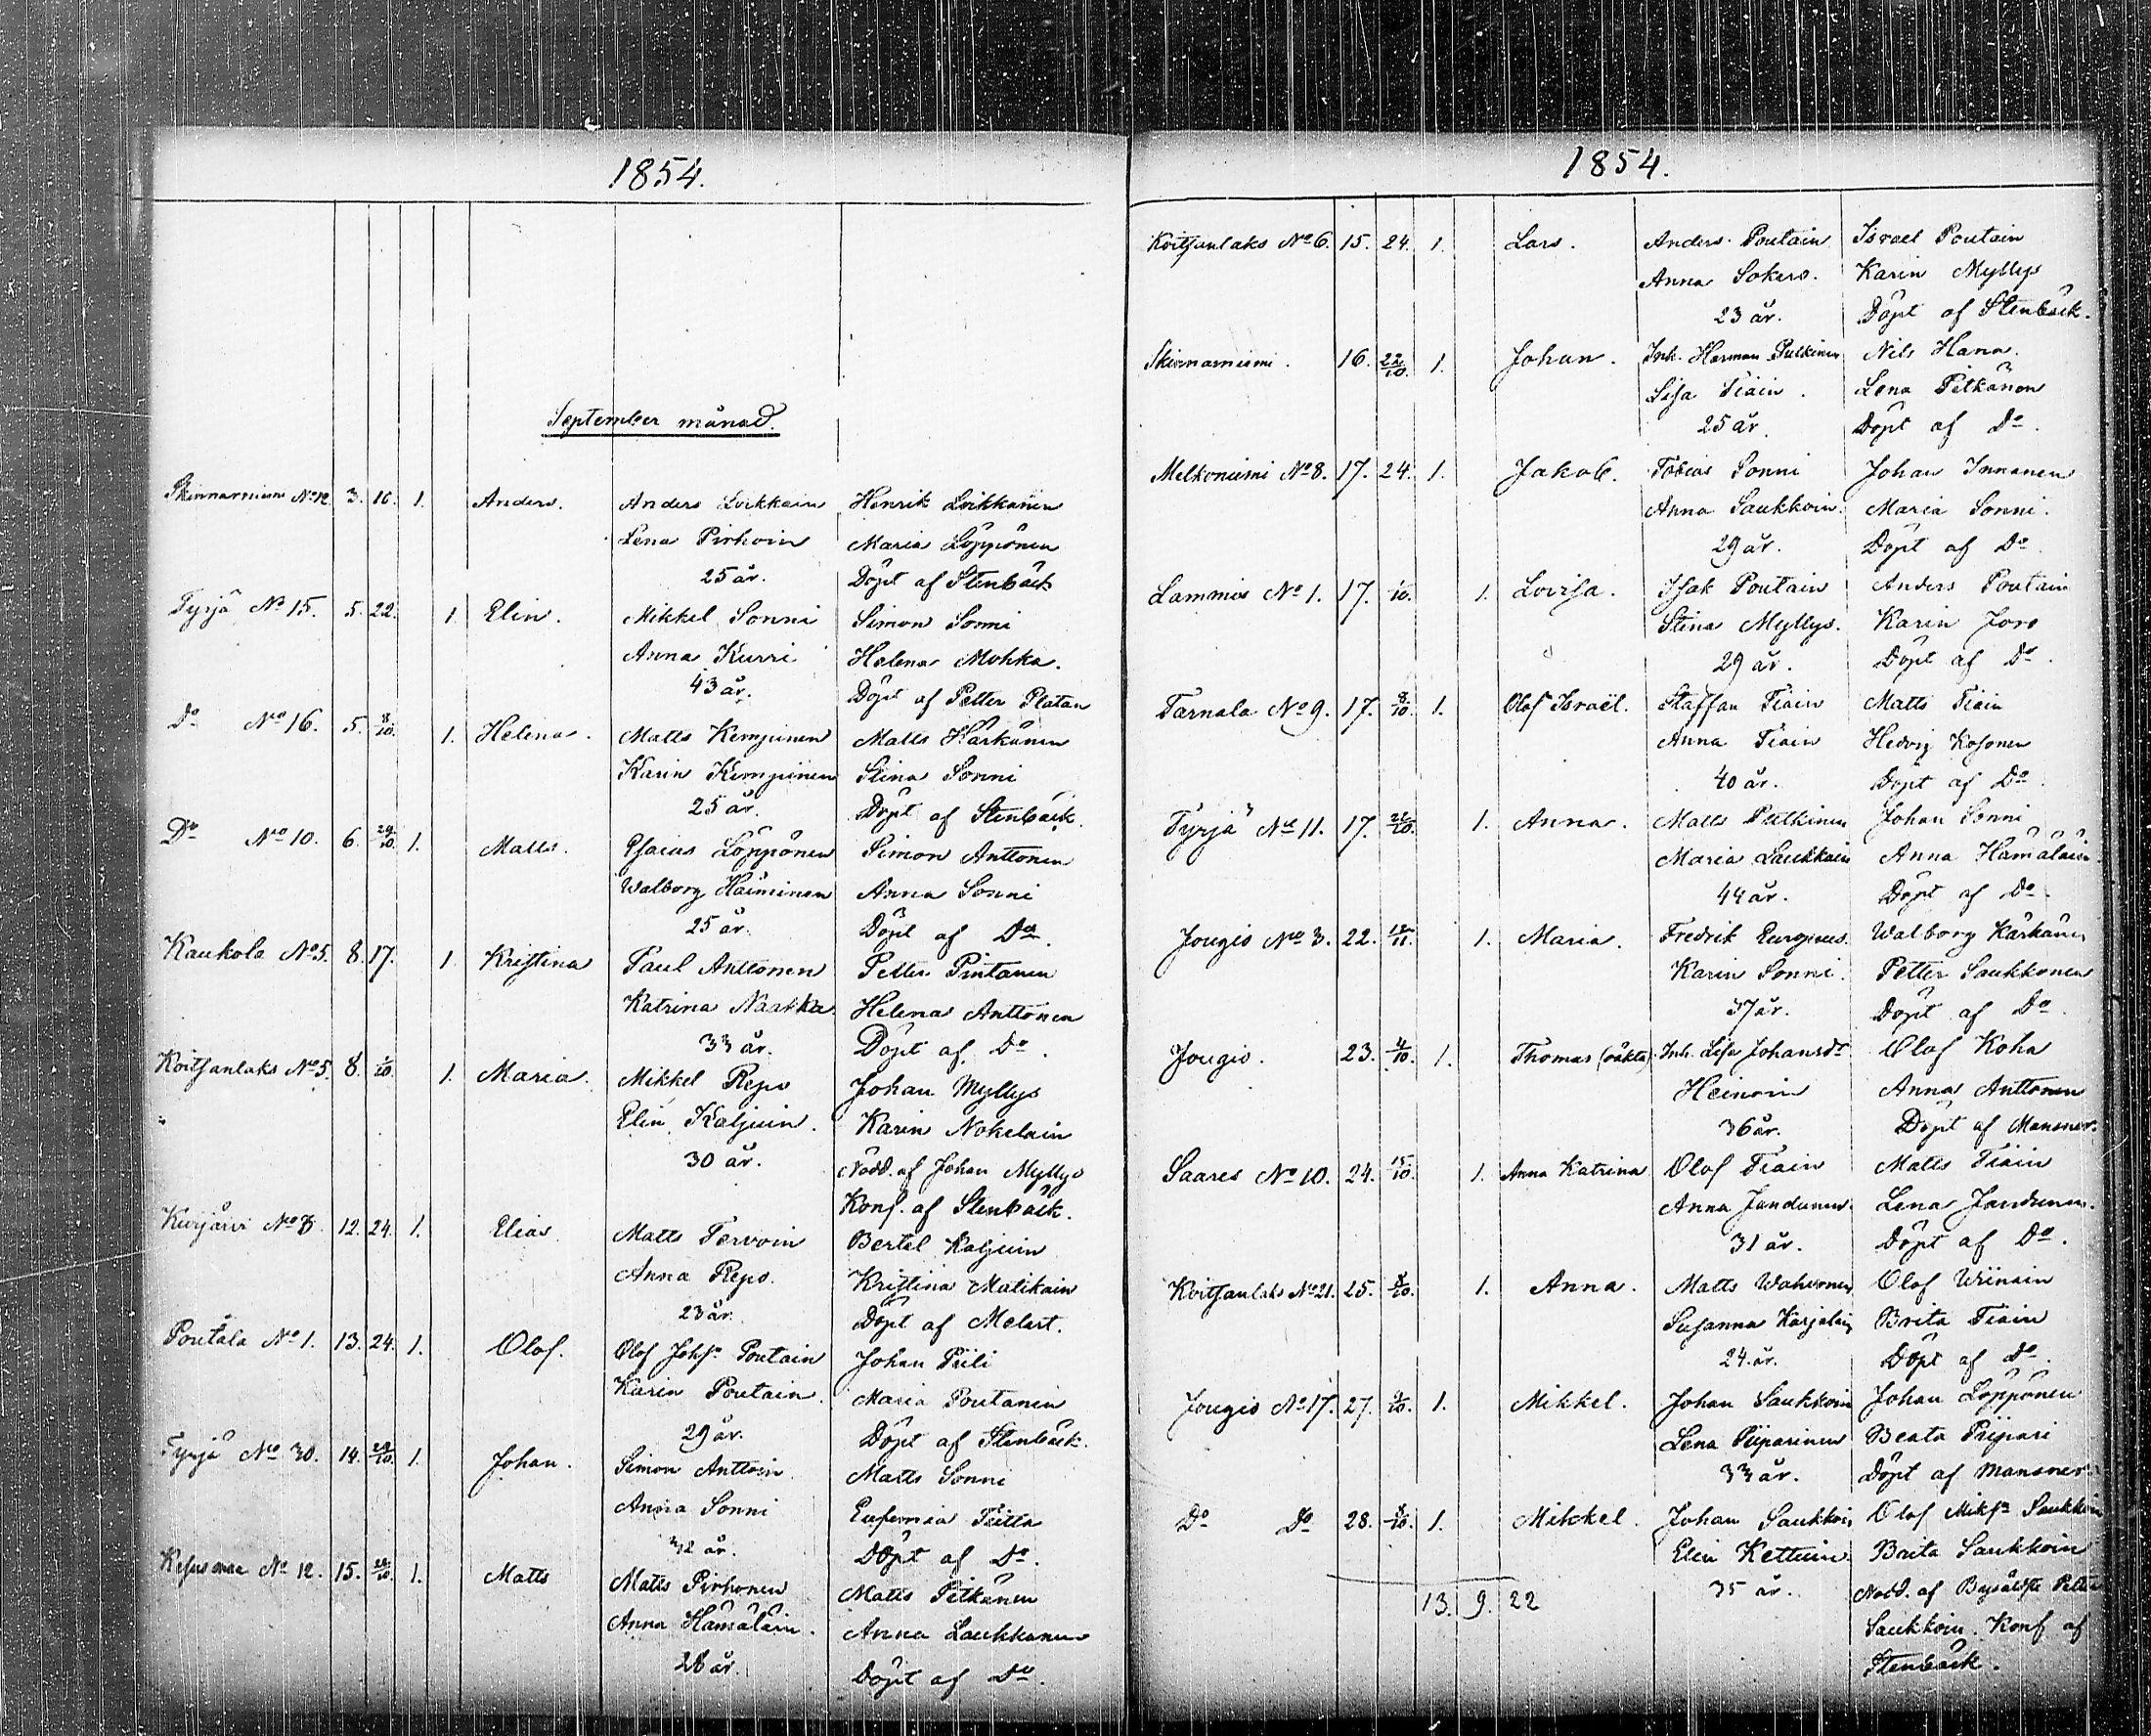 1854.
September månad.
Skinnarniemi No 12. 3. 16. 1. Anders. Anders Loikkain Henrik Loikkanen
Lena Pirhoin Maria Löppönen
25 år. Döpt af Stenbäck
Tyrjä No 15. 5. 22. 1. Elin. Mikkel Sonni Simon Sonni
Anna Kurri Helena Mohka.
43 år. Döpt af Petter Platan
Do No 16. 5. 8/10. 1. Helena. Matts Kempinen Matts Härkönen
Karin Kempinen Stina Sonni
25 år. Döpt af Stenbäck.
Do No 10. 6. 29/10. 1. Matts. Esaias Löppönen Simon Anttonen
Walborg Häiminen Anna Sonni
25 år. Döpt af Do.
Kaukola No 5. 8. 17. 1. Kristina Paul Anttonen Petter Pintanen
Katrina Naatka Helena Anttonen
33 år. Döpt af Do.
Koitsanlaks No 5. 8. 1/10. 1. Maria. Mikkel Repo Johan Myllys
Elin Kaljuin. Karin Nokelain
30 år. Nödd. af Johan Myllys
Konf. af Stenbäck.
Kurjärvi No 8. 12. 24. 1. Elias. Matts Tervoin Bertel Kaljuin
Anna Repo. Kristina Matikain
23 år. Döpt af Melart.
Poutala No 1. 13. 24. 1. Olof. Olof Johsn Poutain Johan Piili
Karin Poutain. Maria Poutanen
29 år. Döpt af Stenbäck.
Tyrjä No 30. 14. 29/10. 1. Johan. Simon Anttoin Matts Sonni
Anna Sonni Eufemia Teitta
32 år. Döpt af Do.
No 12. 15. 1. Matts Matts Pirhonen Matts Pitkänen
Anna Hämäläin. Anna Laukkanen
28 år. Döpt af Do.
1854.
Koitsanlaks No 6. 15. 24. 1. Lars. Anders Poutain Israel Poutain
Anna Sokero. Karin Myllys
23 år. Döpt af Stenbäck.
Skinnarniemi. 16. 22/10. 1. Johan. Inh. Herman Pulkinen Nils Hana.
Lisa Tiain. Lena Pitkänen
25 år. Döpt af Do.
Melkoniemi No 8. 17. 24. 1. Jakob. Tobias Sonni Johan Innanen
Anna Saukkoin. Maria Sonni.
29 år. Döpt af Do.
Lammis No 1. 17. 1/10. 1. Lovisa. Isak Poutain Anders Poutain
Stina Myllys. Karin Joro
29 år. Döpt af Do.
Tarnala No 9. 17. 8/10. 1. Olof Israël. Staffan Tiain Matts Tiain
Anna Tiain Hedvig Kosonen
40 år. Döpt af Do.
Tyrjä No 11. 17. 1. Anna. Matts Pulkinen Johan Sonni
Maria Laukkain Anna Hämäläin
44 år. Döpt af Do.
Jougio No 3. 22. 1. Maria. Fredrik Europæus. Walborg Härkänen
Karin Sonni. Petter Saukkonen
37 år. Döpt af Do.
Jougio. 23. 4/10. 1. Thomas (oäkta) Inh. Lisa Johansdr Olof Koha
Heinoin Anna Anttonen
36 år. Döpt af Mansner.
Saares No 10. 24. 15/10. 1. Anna Katrina Olof Tiain Matts Tiain
Anna Jandunen. Lena Jandunen.
31 år. Döpt af Do.
Koitsanlaks No 21. 25. 8/10. 1. Anna. Matts Wahvonen Olof Wiinain
Susanna Karjalain Brita Tiain
24. år. Döpt af Do.
Jougio No 17. 27. 1. Mikkel. Johan Saukkoin Johan Löppönen
Lena Piiparinen Beata Piipari
33 år. Döpt af Mansner.
Do Do 28. 8/10. 1. Mikkel. Johan Saukkoin Olof Miksn Saukkoin
Elin Kettuin. Brita Saukkoin
13. 9. 22 35 år. Nödd. af Byäldste Petter
Saukkoin. Konf. af
Stenbäck.